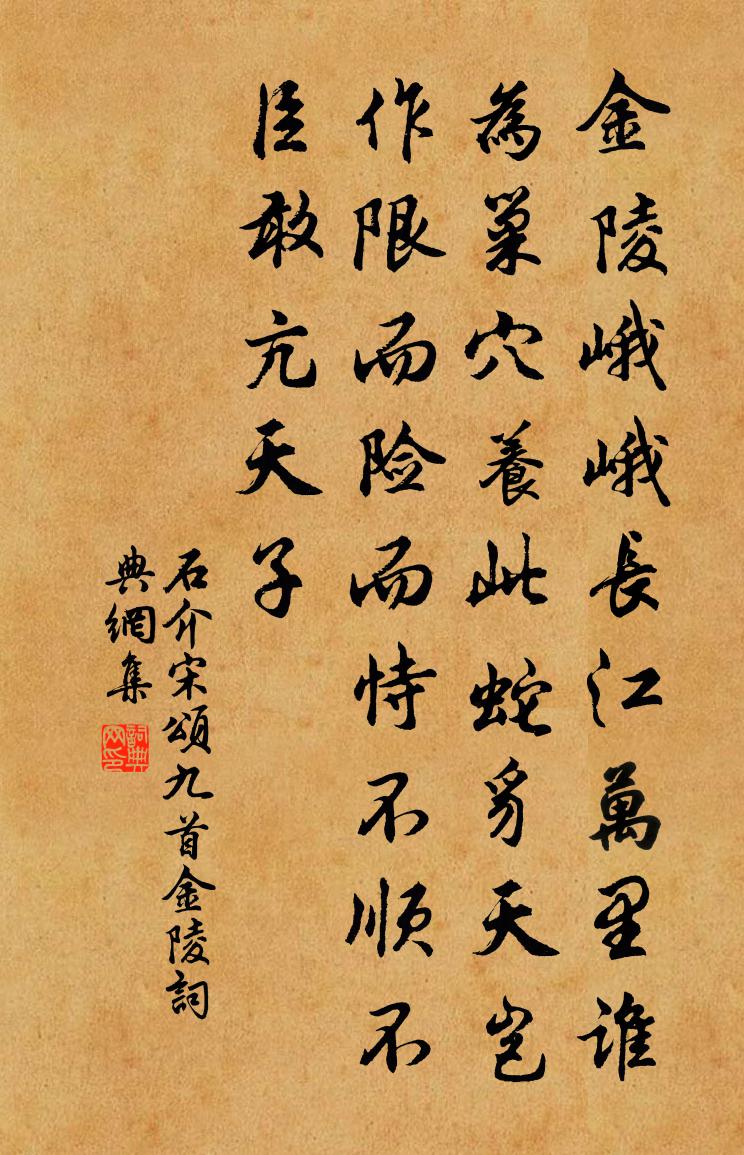 金陵峨峨長江萬里誰
為巢穴養此蛇豸天岂
作限而险而恃不順不
臣敢亢天子
石介宋頌九首金陵詞
典網集
詞典
网印